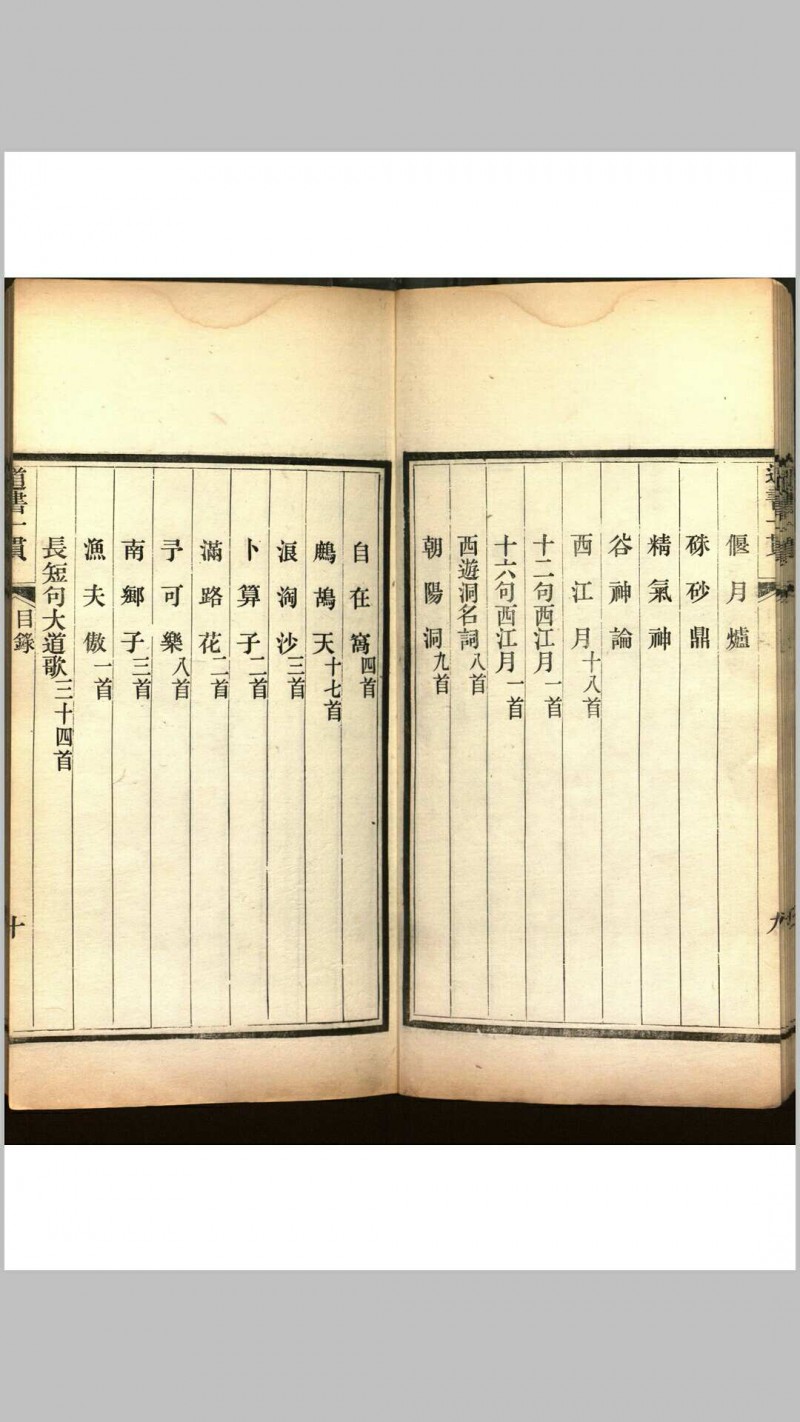 道書一貫
九
偃月爐
硃砂鼎
精氣神
谷神論
西江月十八首
十二句西江月一首
十六句西江月一首
西遊洞名詞八首
朝陽洞九首
自在窩四首
鷓鴣天十七首
浪淘沙三首
卜算子二首
滿路花二首
予可樂八首
南鄉子三首
漁夫傲一首
長短句大道歌三十四首
道書一貫
目錄
十